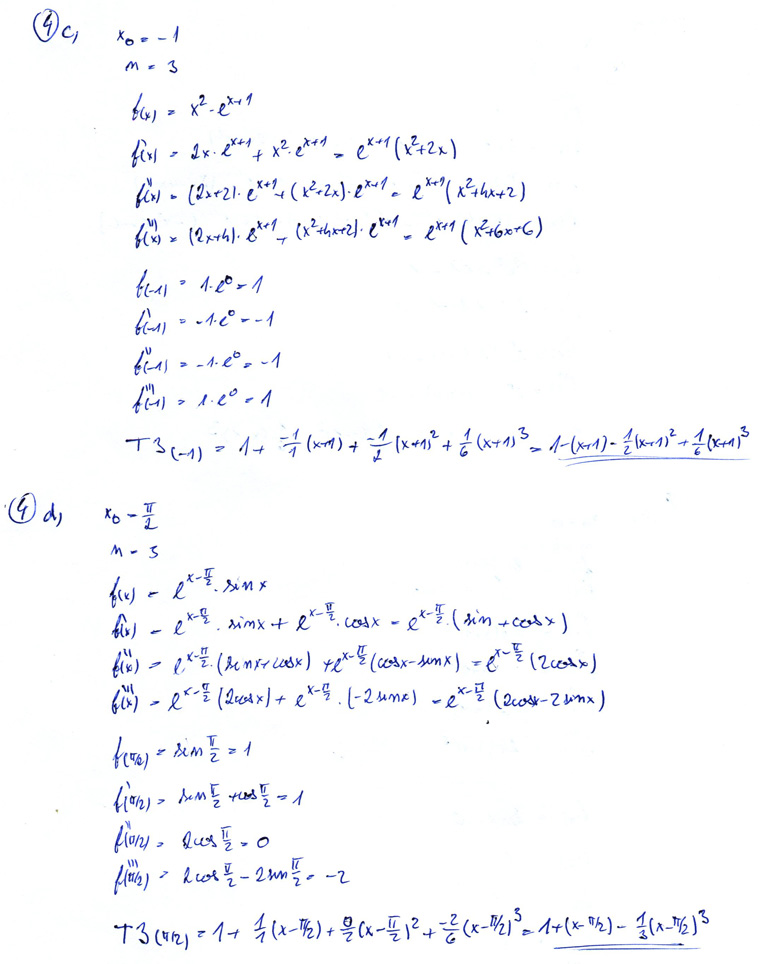 ④ c,
x₀ = -1
n = 3
f(x) = x² · e^(x+1)
f'(x) = 2x · e^(x+1) + x² · e^(x+1) = e^(x+1) (x²+2x)
f''(x) = (2x+2) · e^(x+1) + (x²+2x) · e^(x+1) = e^(x+1) (x²+4x+2)
f'''(x) = (2x+4) · e^(x+1) + (x²+4x+2) · e^(x+1) = e^(x+1) (x²+6x+6)
f(-1) = 1 · e⁰ = 1
f'(-1) = -1 · e⁰ = -1
f''(-1) = -1 · e⁰ = -1
f'''(-1) = 1 · e⁰ = 1
T3(-1) = 1 + -1/1 (x+1) + -1/2 (x+1)² + 1/6 (x+1)³ = 1-(x+1) - 1/2 (x+1)² + 1/6 (x+1)³
④ d,
x₀ = π/2
n = 3
f(x) = e^(x-π/2) · sinx
f'(x) = e^(x-π/2) · sinx + e^(x-π/2) · cosx = e^(x-π/2) · (sin + cosx)
f''(x) = e^(x-π/2) · (sinx+cosx) + e^(x-π/2) (cosx-sinx) = e^(x-π/2) (2cosx)
f'''(x) = e^(x-π/2) (2cosx) + e^(x-π/2) · (-2sinx) = e^(x-π/2) (2cosx-2sinx)
f(π/2) = sin π/2 = 1
f'(π/2) = sin π/2 + cos π/2 = 1
f''(π/2) = 2cos π/2 = 0
f'''(π/2) = 2cos π/2 - 2sin π/2 = -2
T3(π/2) = 1 + 1/1 (x-π/2) + 0/2 (x-π/2)² + -2/6 (x-π/2)³ = 1+(x-π/2) - 1/3 (x-π/2)³